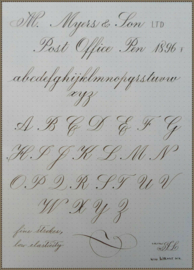 M. Myers & Son LTD
Post Office Pen 1896
abcdefghijklmnopqrstuvw
xyz
A B C D E F G
H I J K L M N
O P Q R S T U V
W X Y Z
fine strokes,
low elasticity